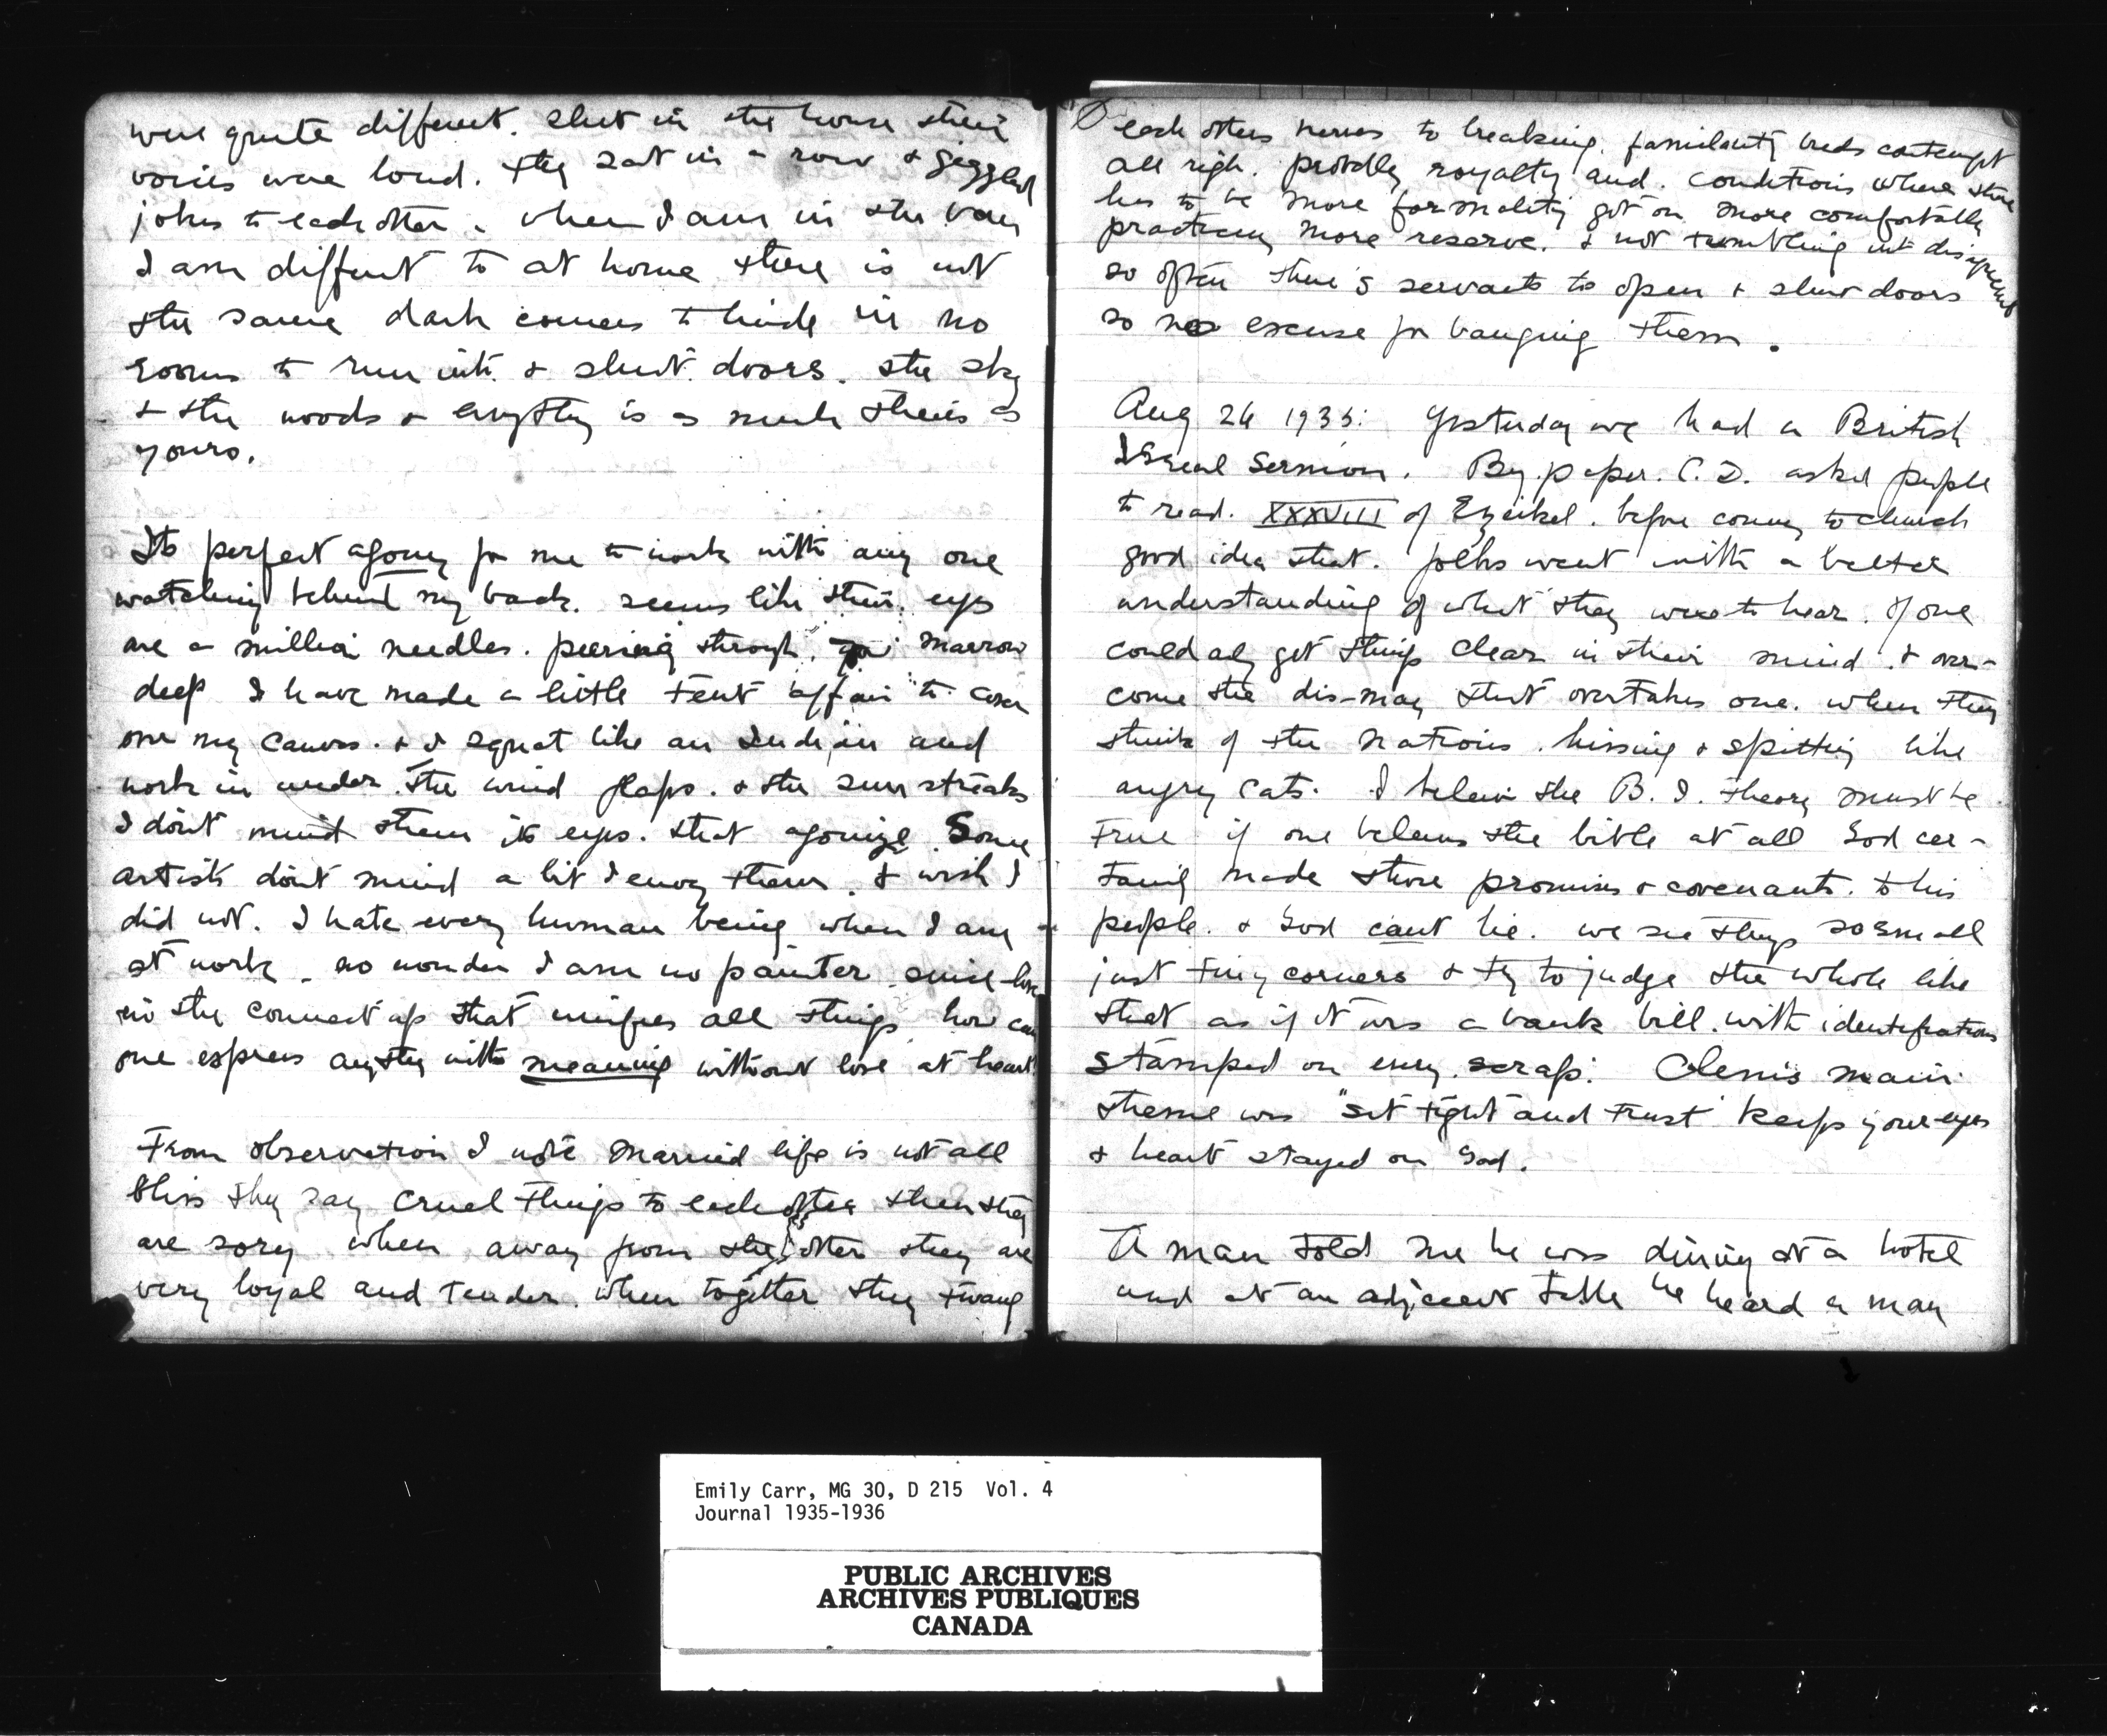 were quite different. shut in the house their
voices were loud. they sat in a row & giggled
jokes to each other. when I am in the van
I am diffent to at home there is not
the same dark corners to hide in no
rooms to run into & shut doors. the sky
& the woods & everything is as much theirs as
yours.
Its perfect agony for me to work with any one
watching behind my back. seems like their eyes
are a million needles. peering through, marrow
deep I have made a little tent affair to cover
over my canvas. & I squat like an Indian and
work in under the wind flaps. & the sun streaks
I dont mind them its eyes. that agonize Some
artists dont mind a bit I envoy them. & wish I
did not. I hate every human being when I am
at work. no wonder I am no painter since love
is the connect up that unifies all things how can
one express anything with meaning without love at heart
From observation I note married life is not all
bliss they say cruel things to each other then they
are sory when away from the other they are
very loyal and tender. when together they twang
each others nerves to breaking. familarity breeds contempt
all righ. probably royalty and. conditions where there
has to be more formality get on more comfortably
practicing more reserve. & not tumbling into
so often there's servants to open & shut doors
so no excuse for banging them.
Aug 26 1935: Yesterday we had a British
Isreal Sermon. By paper. C.D. asked people
to read. XXXVIII of Ezeikel. before coming to church
good idea that. folks went with a better
understanding of what they were to hear. if one
could only get things clear in their mind. & over-
come the dis-may that overtakes one. when they
think of the Nations. hissing & spitting like
angry cats. I beleive the B. I. theory must be
true if one beleives the bible at all God cer-
tainly made those promises & covenants. to his
people. & God cant lie. we see things so small
just tiny corners & try to judge the whole like
that as if it was a bank bill. with identifications
stamped on every scrap. Clem's main
theme was "sit tight and trust keep your eyes
& heart stayed on God.
A man told me he was dining at a hotel
and at an adjacent table he heard a man
Emily Carr, MG 30, D 215 Vol. 4
Journal 1935-1936
PUBLIC ARCHIVES
ARCHIVES PUBLIQUES
CANADA